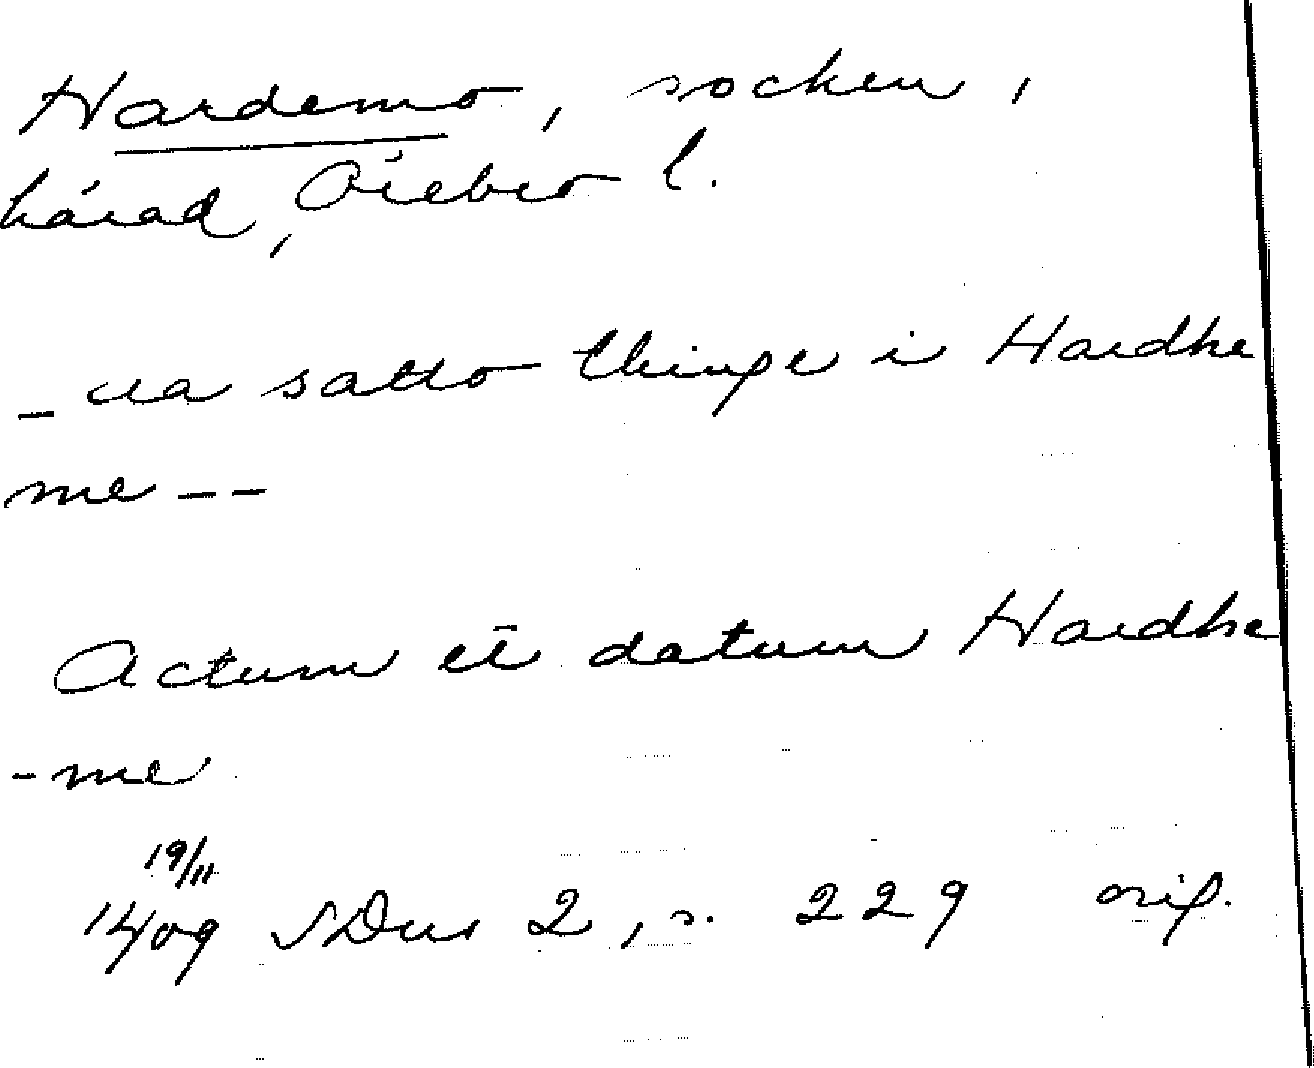 Hardemo, socken,
härad, Örebro l.
- ua satto thinge i Hardhe
me --
Actum et datum Hardhe
-me
19/11
1409 SDns 2, s. 229 orig.